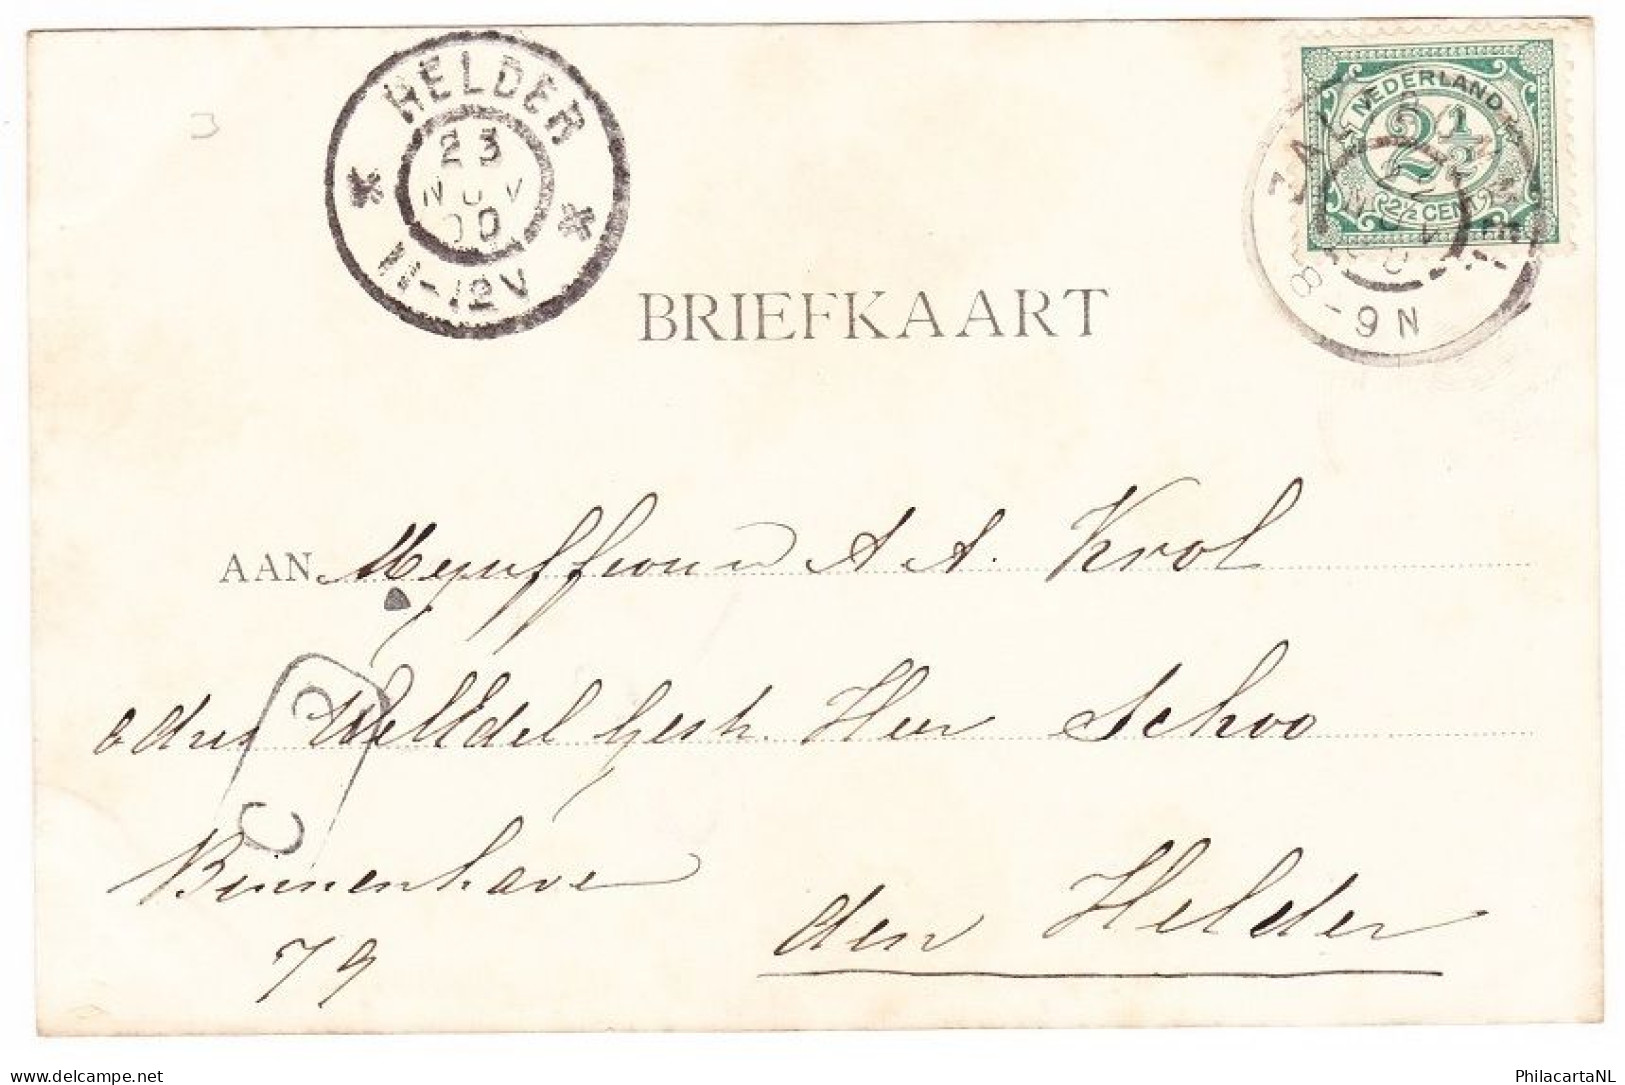 HELDER
23
NOV
00
11-12V
NEDERLAND
2½
2½ CENT
22
NOV
00
8-9N
BRIEFKAART
AAN Mejuffrouw A A. Krol
adres WelEdel Gestr. Heer Schoo
Binnenhave
79
den Helder
PhilacartaNL